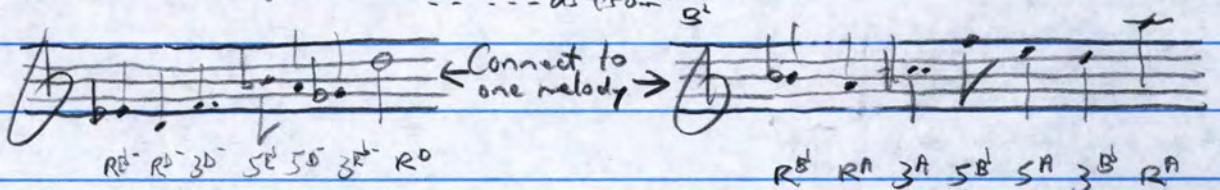 as from
B♭
← Connect to
one melody →
RE♭- RD- 3D- 5E♭- 5D- 3E♭- RD
RB♭ RA 3A 5B♭ 5A 3B♭ RA